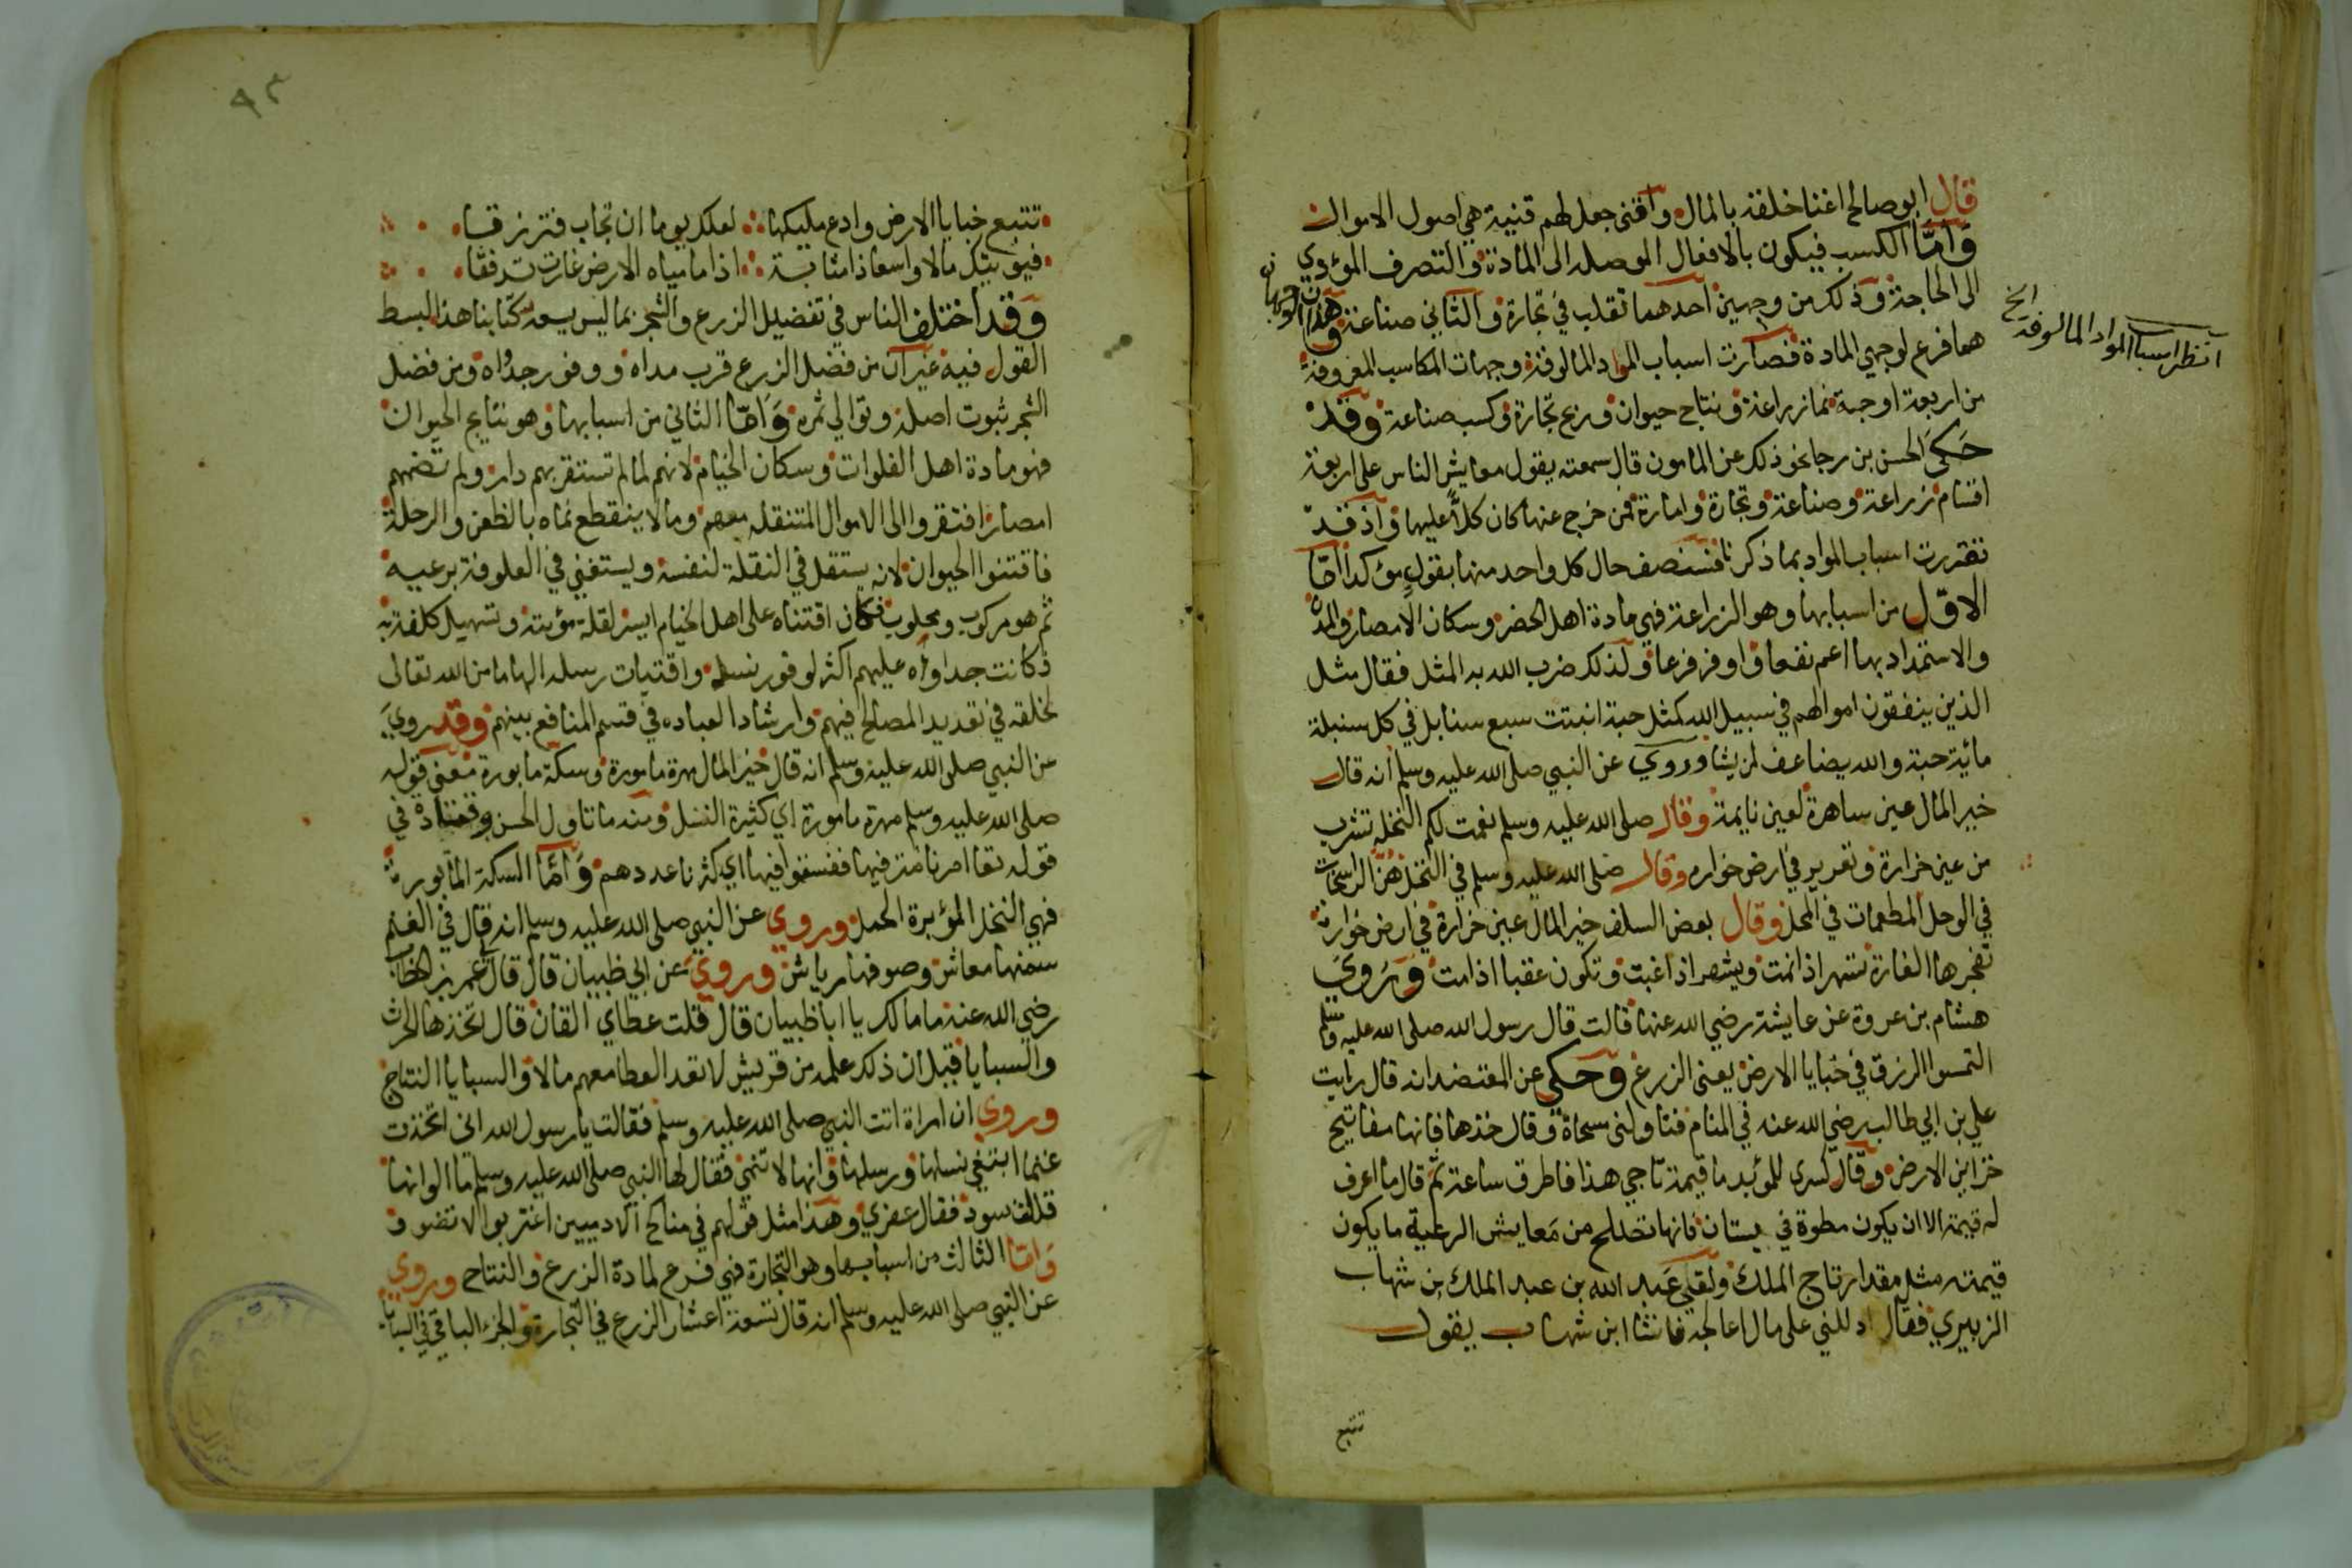 قال ابو صالح اغنا خلقه بالمال واقنى جعل لهم قنية هي اصول الاموال
وَامَّا الكسب فيكون بالافعال الموصله الى المادة والتصرف المؤدي
الى الحاجة وذلك من وجهين احدهما تقلب في تجارة والثاني صناعة وهذان الوجهان
انظر اسباب المواد المالوفة الخ
هما فرع لوجهي المادة فصارت اسباب المواد المالوفة وجهات المكاسب المعروفة
من اربعة اوجه نما زراعة ونتاج حيوان وربح تجارة وكسب صناعة وقد
حَكَى الحسن بن رجا نحو ذلك عن المامون قال سمعته يقول معايش الناس على اربعة
اقسام زراعة وصناعة وتجارة وامارة فمن خرج عنها كان كلاًّ عليها واذ قد
تقررت اسباب المواد بما ذكرنا فسنصف حال كل واحد منها بقولٍ مؤكد امّا
الاول من اسبابها وهو الزراعة فهي مادة اهل الحضر وسكان الامصار والمدن
والاستمداد بها اعم نفعا واوفر فرعا ولذلك ضرب الله به المثل فقال مثل
الذين ينفقون اموالهم في سبيل الله كمثل حبة انبتت سبع سنابل في كل سنبلة
مائية حبة والله يضاعف لمن يشا وروي عن النبي صلى الله عليه وسلم انه قال
خير المال عين ساهرة لعين نايمة وقال صلى الله عليه وسلم نعمت لكم النخلة تشرب
من عين خرارة وتغرير في ارض خواره وقال صلى الله عليه وسلم في النخل هنّ الراسخات
في الوحل المطعمات في المحل وقال بعض السلف خير المال عين خرارة في ارض خوارة
تفجرها الفارة تسهر اذا نمت ويشهد اذا غبت وتكون عقبا اذا مت وَرَوَى
هشام بن عروة عن عايشة رضي الله عنها قالت قال رسول الله صلى الله عليه وسلم
التمسوا الرزق في خبايا الارض يعنى الزرع وحكي عن المعتضد انه قال رايت
علي بن ابي طالب رضي الله عنه في المنام فناولنى مسحاة وقال خذها فانها مفاتيح
خزاين الارض وقال كسرى للموبذ ما قيمة تاجي هذا فاطرق ساعة ثم قال ما اعرف
له قيمة الا ان يكون مطرة في نيسان فانها تصلح من مَعايش الرعية ما يكون
قيمته مثل مقدار تاج الملك ولقي عَبد الله بن عبد الملك بن شهاب
الزبيري فقال ادللني على مال اعالجه فانشا ابن شهاب يقول
تتبع
٩٣
تتبع خبايا الارض وادع مليكها لعلك يوما ان تجاب فترزقا
فيؤتيك مالا واسعا ذا مثابة اذا ما مياه الارض غارت تدفقا
وَقد اختلف الناس في تفضيل الزرع والشجر بما ليس يسعه كتابنا هذا البسط
القول فيه غير ان من فضل الزرع قرب مداه ووفور جدواه ومن فضل
الشجر ثبوت اصله وتوالي ثمره وَامَّا الثاني من اسبابها وهو نتايج الحيوان
فهو مادة اهل الفلوات وسكان الخيام لانهم لما لم تستقر بهم دار ولم تضمهم
امصار افتقروا الى الاموال المتنقلة معهم وما لا ينقطع نماه بالظعن والرحلة
فاقتنوا الحيوان لانه يستقل في النقلة لنفسه ويستغني في العلوفة برعيه
ثم هو مركوب ومحلوب فكان اقتناه على اهل الخيام ايسر لقلة مؤنته وتسهيل كلفته
فكانت جداواه عليهم اكثر لوفور نسله واقتيات رسله الهاما من الله تعالى
لخلقه في تعديد المصالح فيهم وارشاد العباده في قسم المنافع بينهم وقد روي
عن النبي صلى الله عليه وسلم انه قال خير المال مهرة مامورة وسكة مابورة فمعنى قوله
صلى الله عليه وسلم مهرة مامورة اي كثيرة النسل ومنه ما تاول الحسن وقتادة في
قوله تعا امرنا مترفيها ففسقوا فيها اي كثرنا عددهم وَامَّا السكة المابورة
فهي النخل المؤبرة الحمل وروي عن النبي صلى الله عليه وسلم انه قال في الغنم
سمنها معاش وصوفها رياش وروي عن ابي ظبيان قال قال لي عمر بن الخطاب
رضي الله عنه ما مالك يا ابا ظبيان قال قلت عطاي الفان قال اتخذ هذا الحرث
والسبايا قبل ان ذلك علمه من قريش لا تعد العطا معهم مالا والسبايا النتاج
وروي ان امراة اتت النبي صلى الله عليه وسلم فقالت يا رسول الله انى اتخذت
غنما ابتغي نسلها ورسلها وانها لا تنمي فقال لها النبي صلى الله عليه وسلم ما الوانها
قالت سود فقال عفري وهذا مثل قولهم في مناكح الادميين اغتربوا لا تضووا
وَامّا الثالث من اسبابها وهو التجارة فهي فرع لمادة الزرع والنتاج وروي
عن النبي صلى الله عليه وسلم انه قال تسعة اعشار الرزق في التجارة والجزء الباقي في السبايا